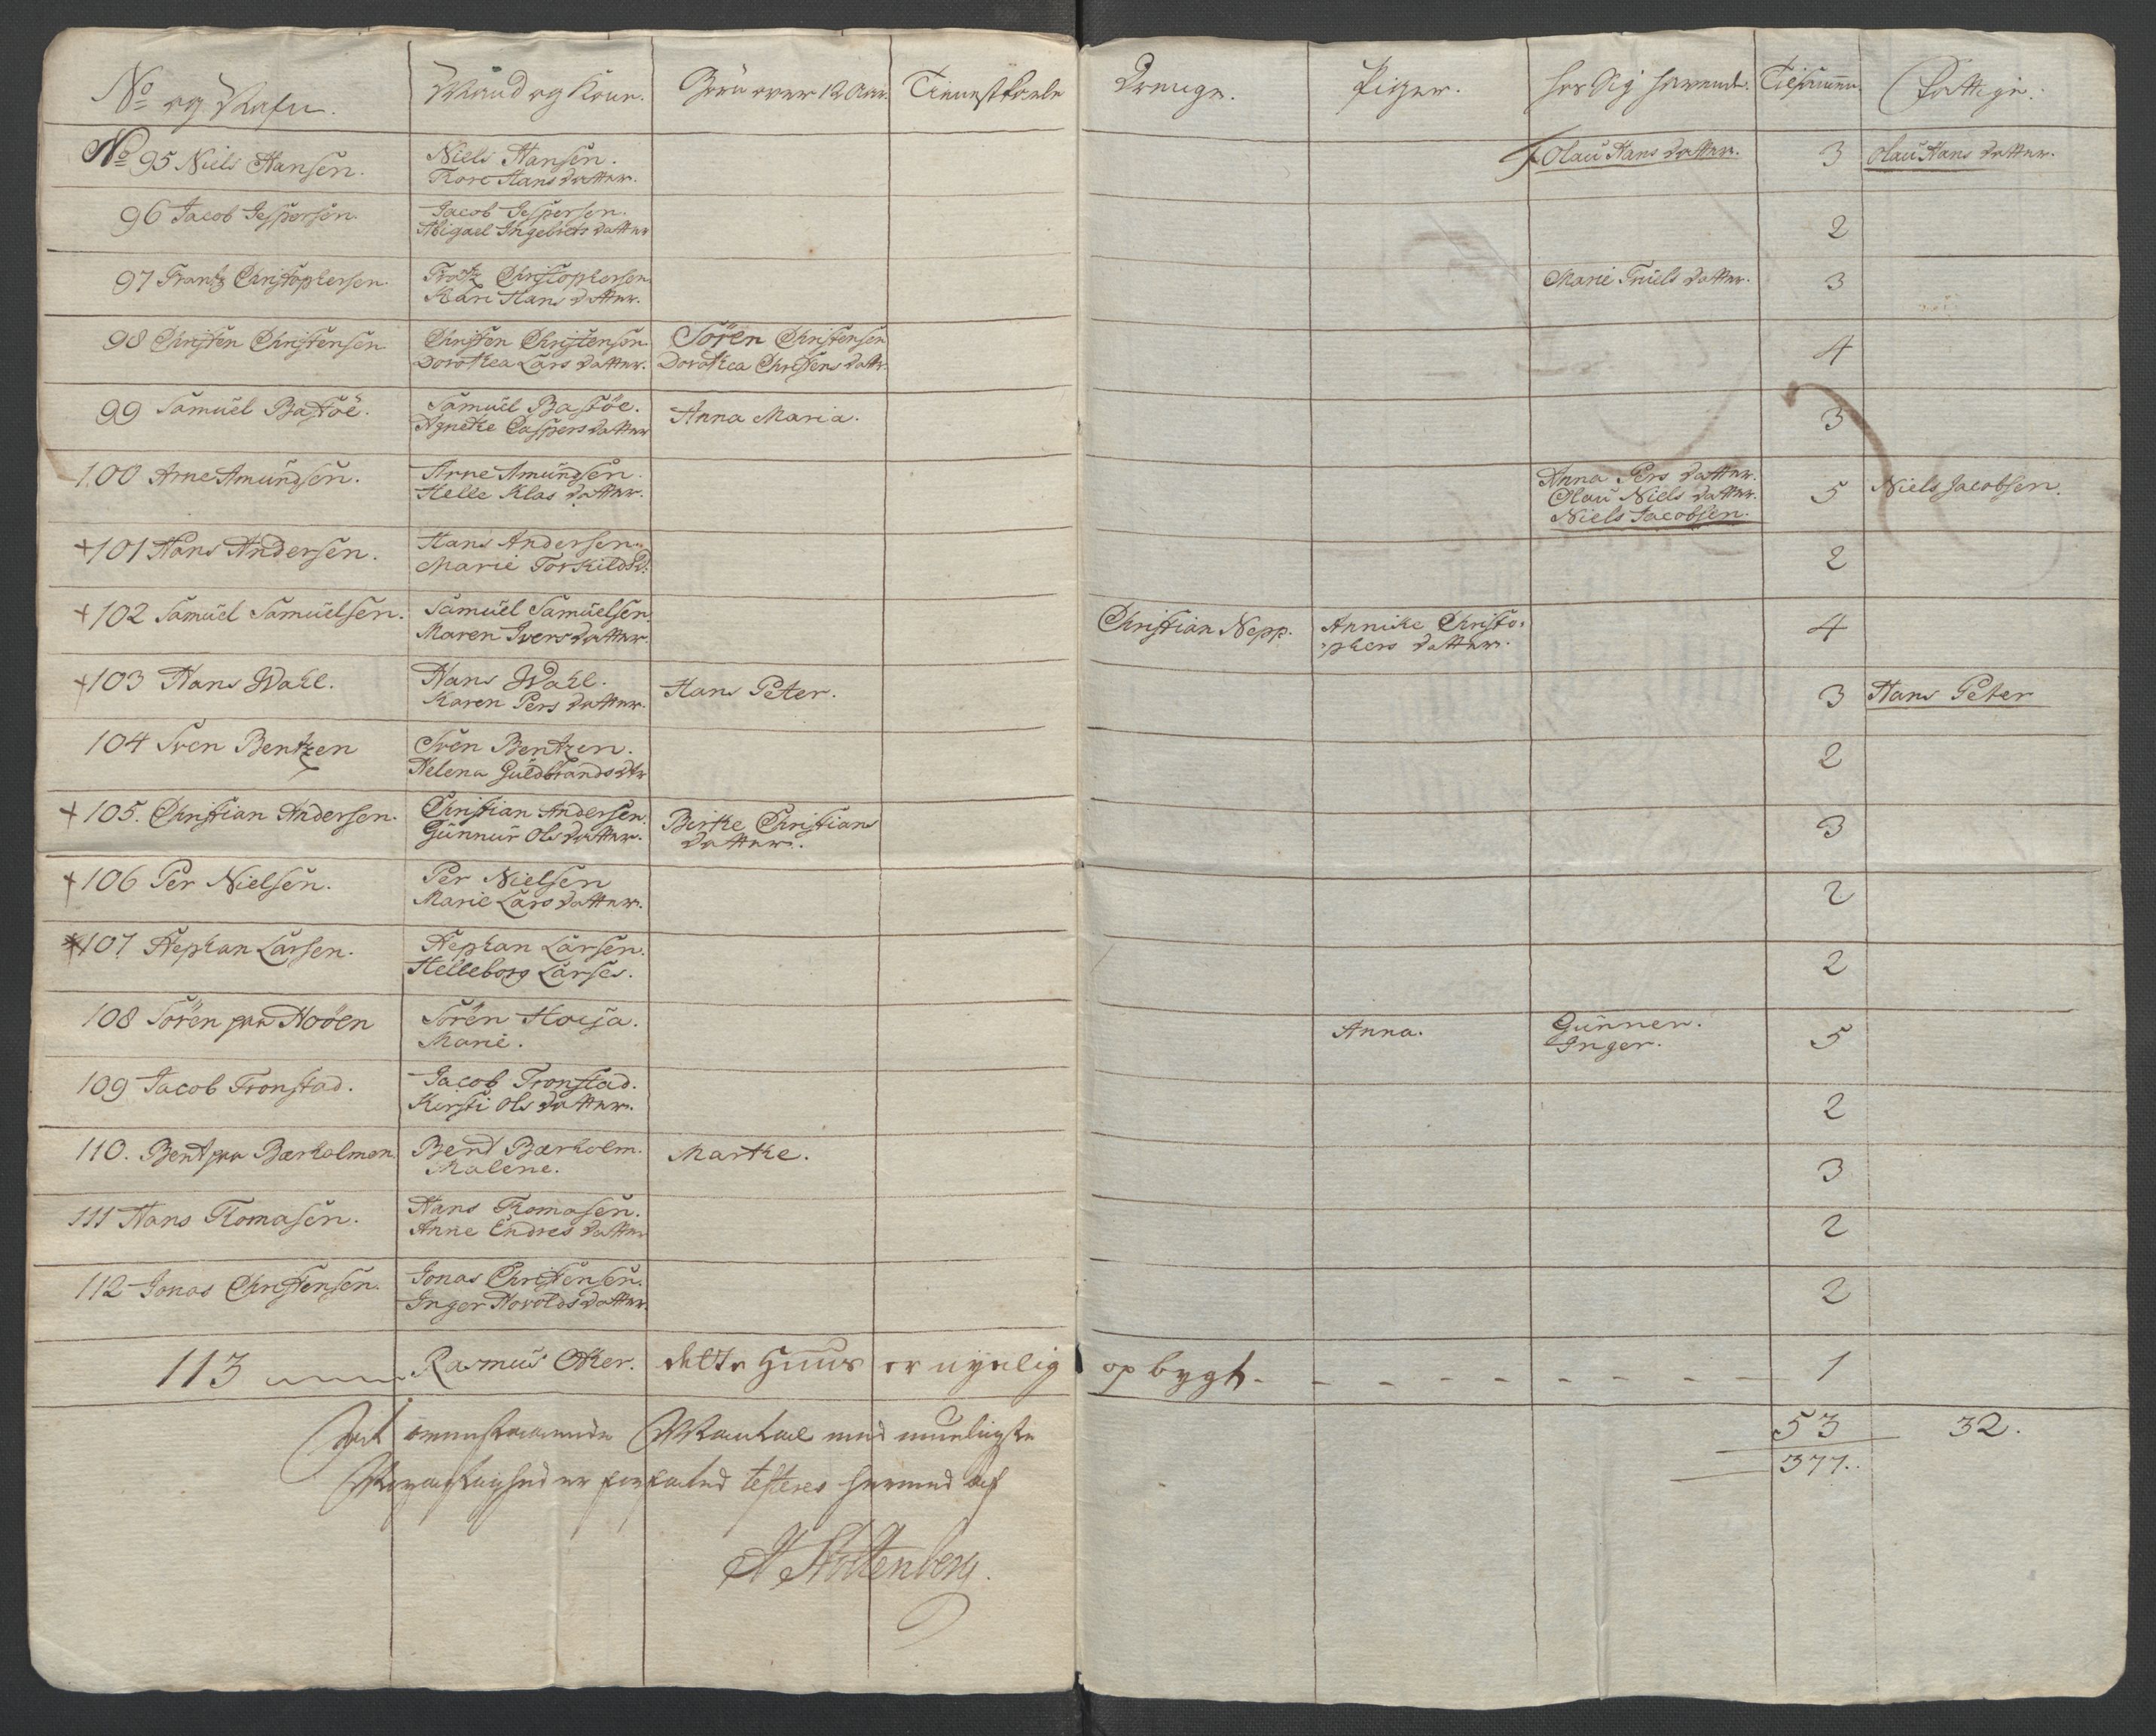 No og Nafn. Mand og Kone. Börn over 12 Aar. Tienestfolk Drenge. Piger. hos sig havende. Tilsamen Fattige.
No 95 Niels Hansen. Niels Hansen. Olau Hans datter. 3 Olau Hans datter.
Kore Hans datter.
96 Jacob Jespersen. Jacob Jespersen. 2
Abigael Ingebrets datter
97 Frantz Christophersen. Frantz Christophersen Marie Truels datter. 3
Kari Hans datter.
98 Christen Christensen Christen Christensen Sören Christensen 4
Dorothea Lars datter. Dorothea Christens datr.
99 Samuel Bastöe. Samuel Bastöe. Anna Maria. 3
Agnethe Caspers datter
100 Arne Amundsen. Arne Amundsen. Anna Pers datter. 5 Niels Jacobsen.
Helle Klas datter. Olau Niels datter.
Niels Jacobsen.
+101 Hans Andersen. Hans Andersen. 2
Marie Torkilds D:
+102 Samuel Samuelsen. Samuel Samuelsen. Christian Nepp. Annike Christo- 4
Maren Ivers datter. phers datter.
+103 Hans Wahl. Hans Wahl. Hans Peter. 3 Hans Peter
Karen Pers datter.
104 Sven Bentzen Sven Bentzen. 2
Helena Guldbrands dtr
+105. Christian Andersen. Christian Andersen. Birthe Christians 3
Gunnur Ols datter. datter.
+106 Per Nielsen. Per Nielsen 2
Marie Lars datter.
+107 Stephan Larsen. Stephan Larsen. 2
Helleborg Larses.
108 Sören paa Hoöen Sören Hoeja. Anna. Gunner. 5
Marie. Inger.
109 Jacob Tronstad. Jacob Tronstad. 2
Kirsti Ols datter.
110. Bent paa Bærholmen. Bend Bærholm. Marthe. 3
Malene.
111 Hans Thomasen. Hans Thomasen. 2
Anne Endres datter
112 Jonas Christensen. Jonas Christensen. 2
Inger Harolds datter.
113 Rasmus Other. dette Huus er nyelig opbygt. 1
At ovenstaaende Mandtal med mueligste 53 32.
Nöyagtighed er forfatted testeres hermed af 377.
A Stoltenberg.